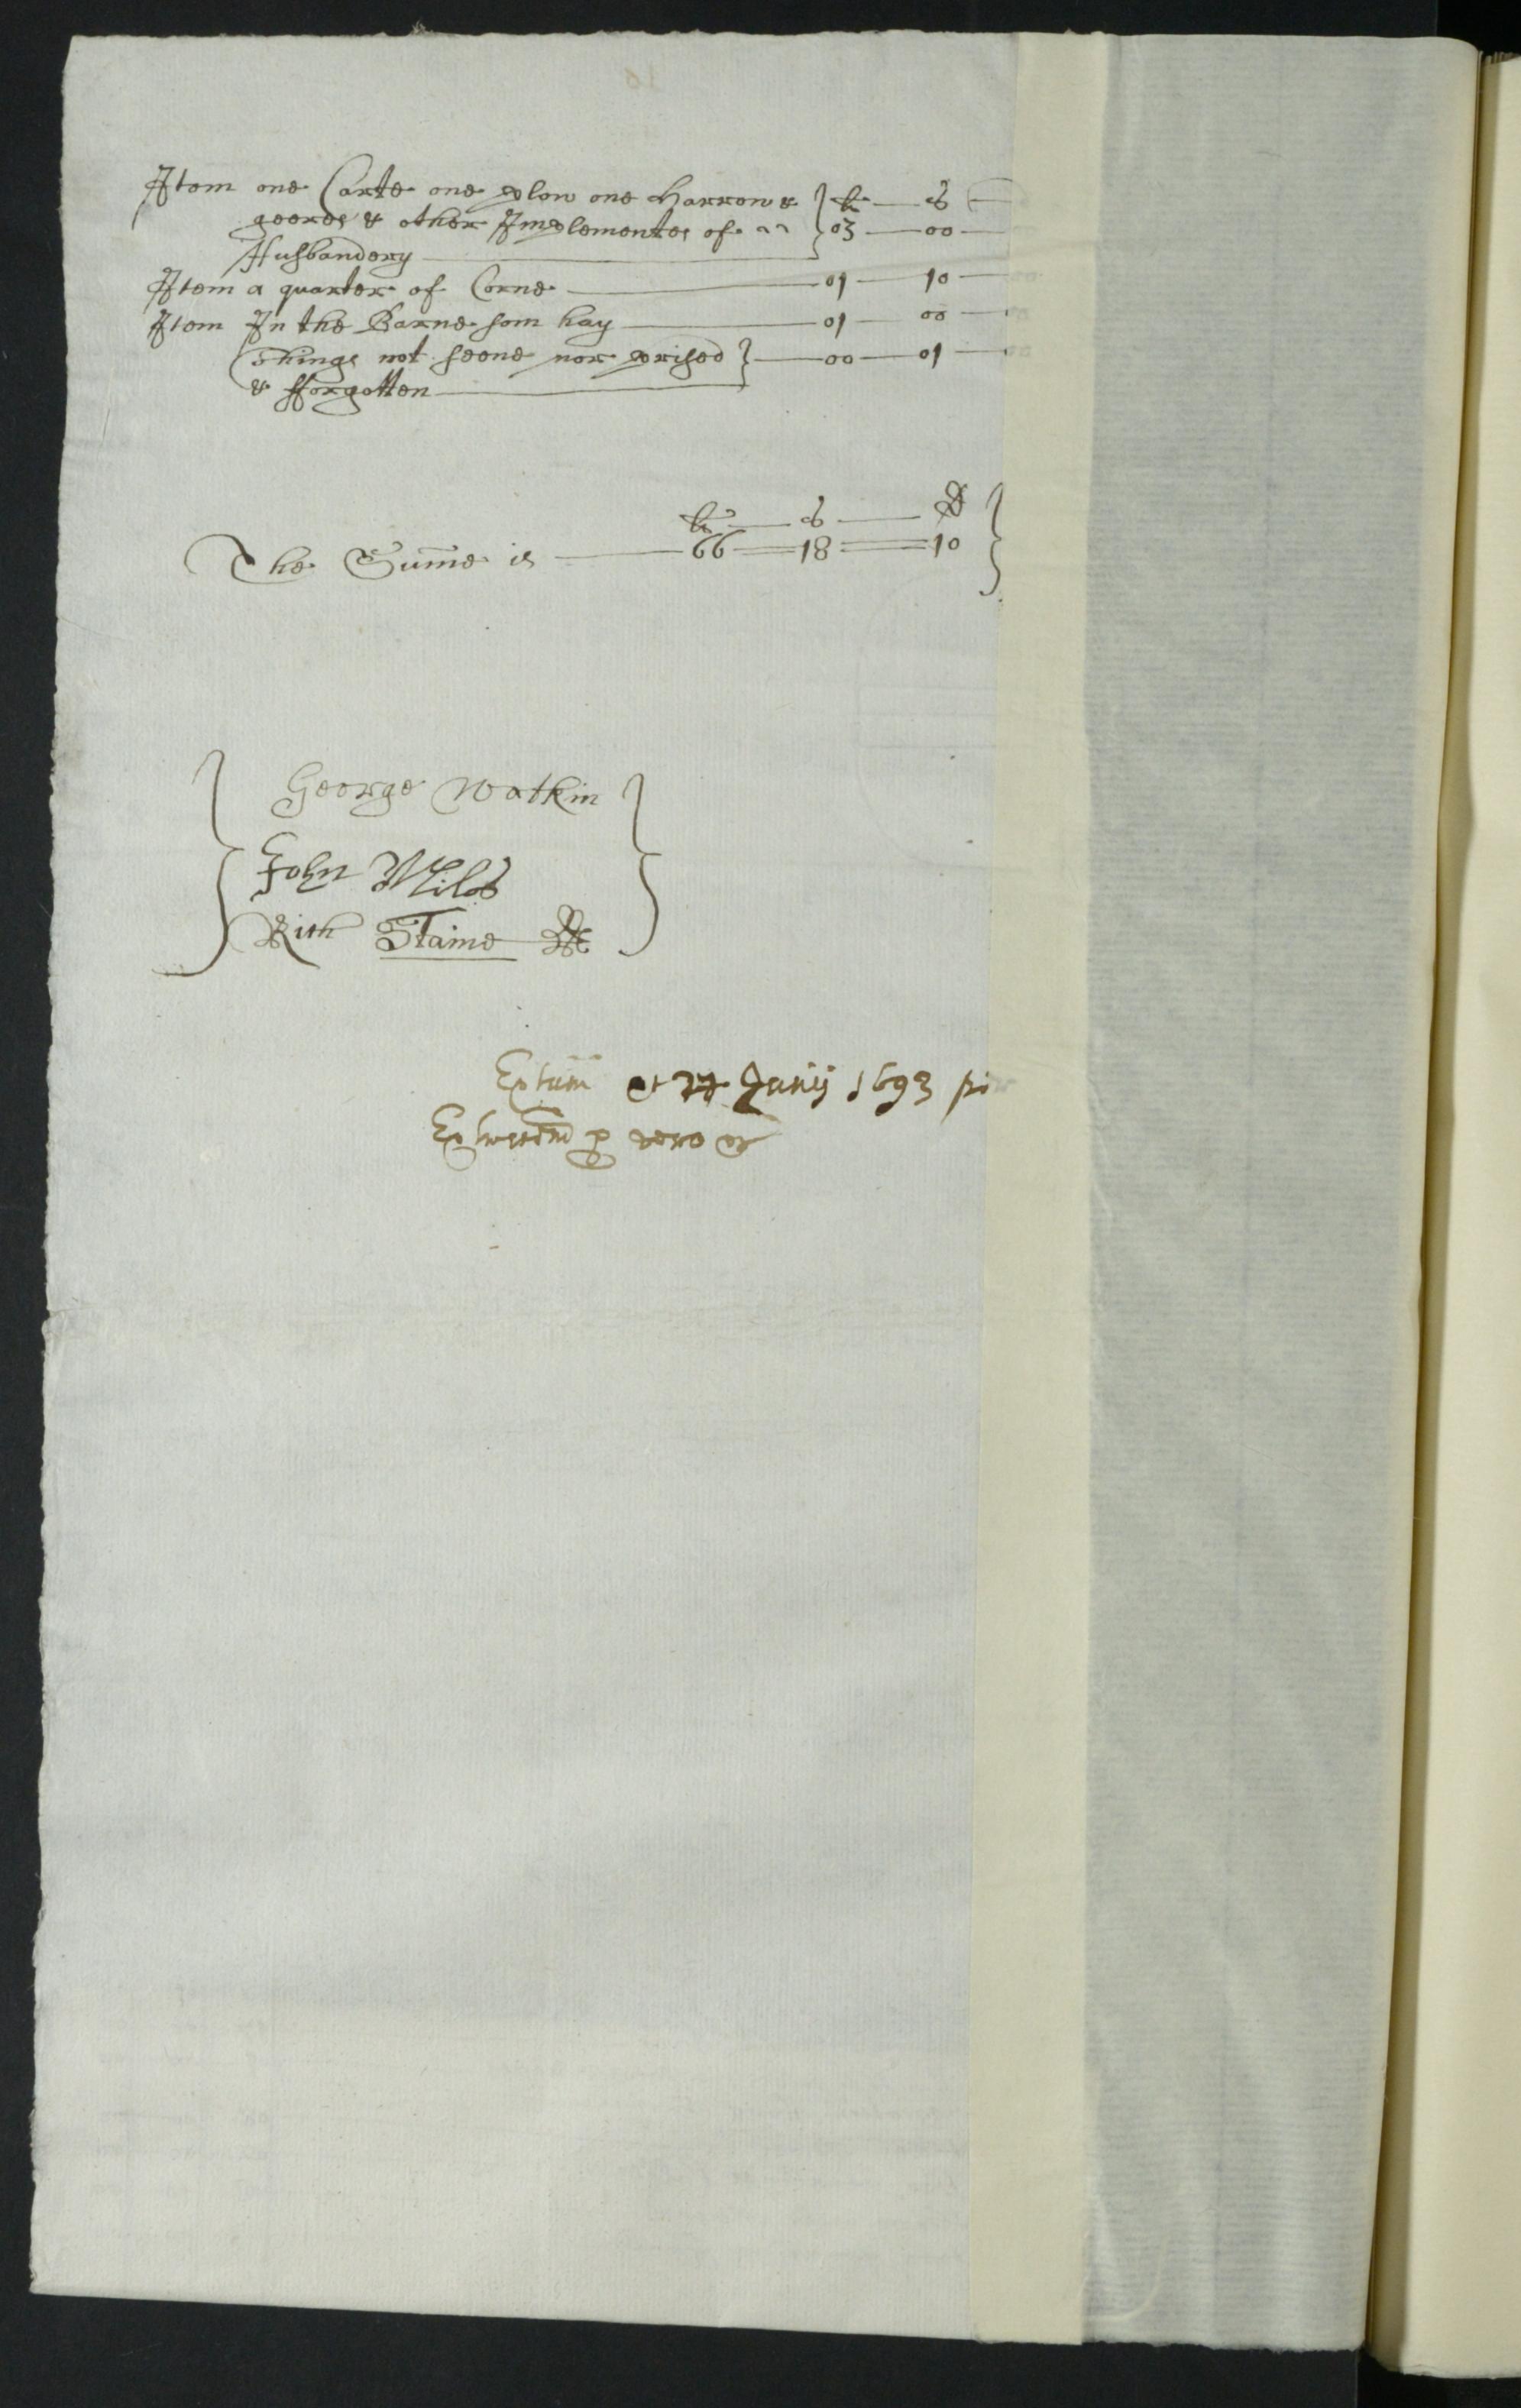 Item one Carte one plow one Harrow & } li — s —
geeres & other Implementes of } 03 — 00 —
Husbandery
Item a quarter of Corne — 01 — 10 —
Item In the Barne som hay — 01 — 00 —
Things not seene nor prised } — 00 — 01 —
& fforgotten
li — s — d
The Sum̃e is — 66 = 18 = 10 }
George Watkin
John Miles
Rich Staine
Junij 1693
p vero &